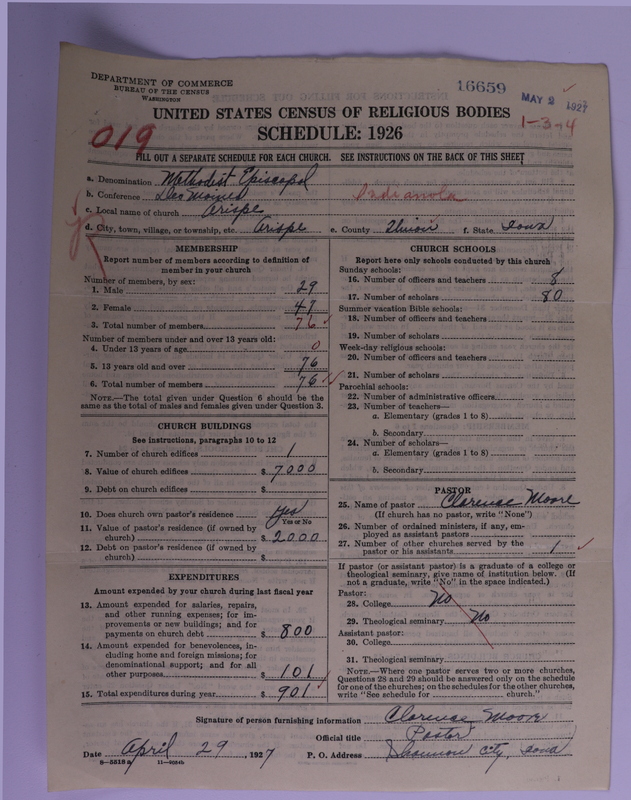 DEPARTMENT OF COMMERCE
BUREAU OF THE CENSUS
WASHINGTON
16659
MAY 2 1927
UNITED STATES CENSUS OF RELIGIOUS BODIES
1-3-4
019
SCHEDULE: 1926
FILL OUT A SEPARATE SCHEDULE FOR EACH CHURCH. SEE INSTRUCTIONS ON THE BACK OF THIS SHEET
a. Denomination Methodist Episcopal
b. Conference Des Moines Indianola
c. Local name of church Arispe
d. City, town, village, or township, etc. Arispe e. County Union f. State Iowa
MEMBERSHIP
Report number of members according to definition of
member in your church
Number of members, by sex:
1. Male 29
2. Female 47
3. Total number of members 76
Number of members under and over 13 years old:
4. Under 13 years of age 0
5. 13 years old and over 76
6. Total number of members 76
NOTE.—The total given under Question 6 should be the
same as the total of males and females given under Question 3.
CHURCH BUILDINGS
See instructions, paragraphs 10 to 12
7. Number of church edifices 1
8. Value of church edifices $ 7000
9. Debt on church edifices $
10. Does church own pastor's residence yes
Yes or No
11. Value of pastor's residence (if owned by
church) $ 2000
12. Debt on pastor's residence (if owned by
church) $
EXPENDITURES
Amount expended by your church during last fiscal year
13. Amount expended for salaries, repairs,
and other running expenses; for im-
provements or new buildings; and for
payments on church debt $ 800
14. Amount expended for benevolences, in-
cluding home and foreign missions; for
denominational support; and for all
other purposes $ 101
15. Total expenditures during year $ 901
CHURCH SCHOOLS
Report here only schools conducted by this church
Sunday schools:
16. Number of officers and teachers 8
17. Number of scholars 80
Summer vacation Bible schools:
18. Number of officers and teachers
19. Number of scholars
Week-day religious schools:
20. Number of officers and teachers
21. Number of scholars
Parochial schools:
22. Number of administrative officers
23. Number of teachers—
a. Elementary (grades 1 to 8)
b. Secondary
24. Number of scholars—
a. Elementary (grades 1 to 8)
b. Secondary
PASTOR
25. Name of pastor Clarence Moore
(If church has no pastor, write "None")
26. Number of ordained ministers, if any, em-
ployed as assistant pastors
27. Number of other churches served by the
pastor or his assistants 1
If pastor (or assistant pastor) is a graduate of a college or
theological seminary, give name of institution below. (If
not a graduate, write "No" in the space indicated.)
Pastor:
28. College No
29. Theological seminary No
Assistant pastor:
30. College
31. Theological seminary
NOTE.—Where one pastor serves two or more churches,
Questions 28 and 29 should be answered only on the schedule
for one of the churches; on the schedules for the other churches,
write "See schedule for church."
Signature of person furnishing information Clarence Moore
Official title Pastor
Date April 29, 1927 P. O. Address Shannon City, Iowa